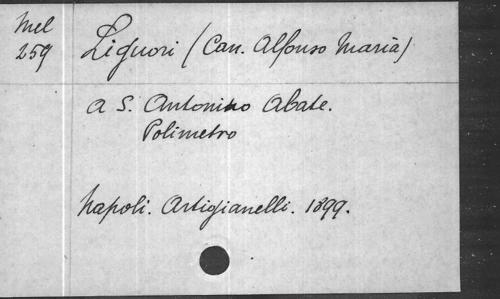 Mel
259
Liguori (Can. Alfonso Maria)
A S. Antonino Abate.
Polimetro
Napoli. Artigianelli. 1899.